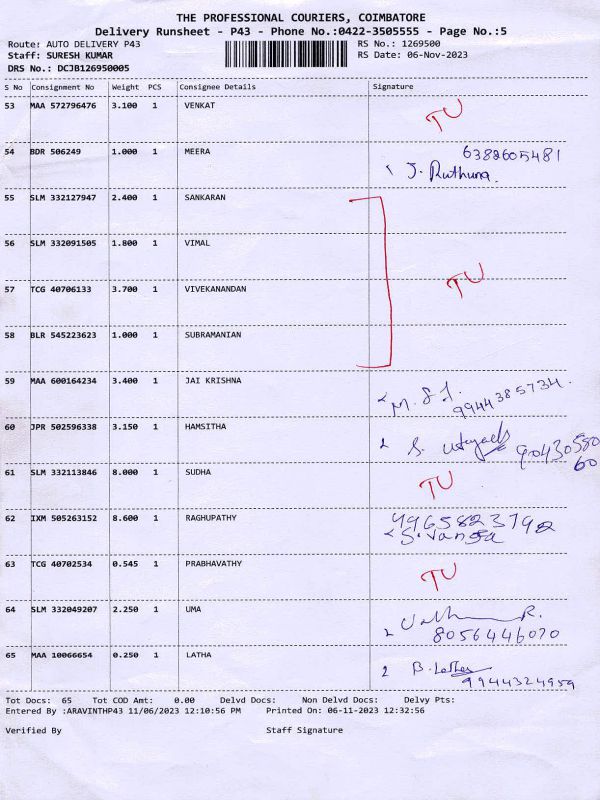 THE PROFESSIONAL COURIERS, COIMBATORE
Delivery Runsheet - P43 - Phone No.:0422-3505555 - Page No.:5
Route: AUTO DELIVERY P43 RS No.: 1269500
Staff: SURESH KUMAR RS Date: 06-Nov-2023
DRS No.: DCJB126950005
S No Consignment No Weight PCS Consignee Details Signature
53 MAA 572796476 3.100 1 VENKAT TU
54 BDR 506249 1.000 1 MEERA 6382605481
J. Ruthuna.
55 SLM 332127947 2.400 1 SANKARAN
56 SLM 332091505 1.800 1 VIMAL
57 TCG 40706133 3.700 1 VIVEKANANDAN TU
58 BLR 545223623 1.000 1 SUBRAMANIAN
59 MAA 600164234 3.400 1 JAI KRISHNA
9944385734.
60 JPR 502596338 3.150 1 HAMSITHA S. 90430580
60
61 SLM 332113846 8.000 1 SUDHA TU
62 IXM 505263152 8.600 1 RAGHUPATHY
63 TCG 40702534 0.545 1 PRABHAVATHY TU
64 SLM 332049207 2.250 1 UMA R.
8056446070
65 MAA 10066654 0.250 1 LATHA B. Latha
9944324959
Tot Docs: 65 Tot COD Amt: 0.00 Delvd Docs: Non Delvd Docs: Delvy Pts:
Entered By :ARAVINTHP43 11/06/2023 12:10:56 PM Printed On: 06-11-2023 12:32:56
Verified By Staff Signature